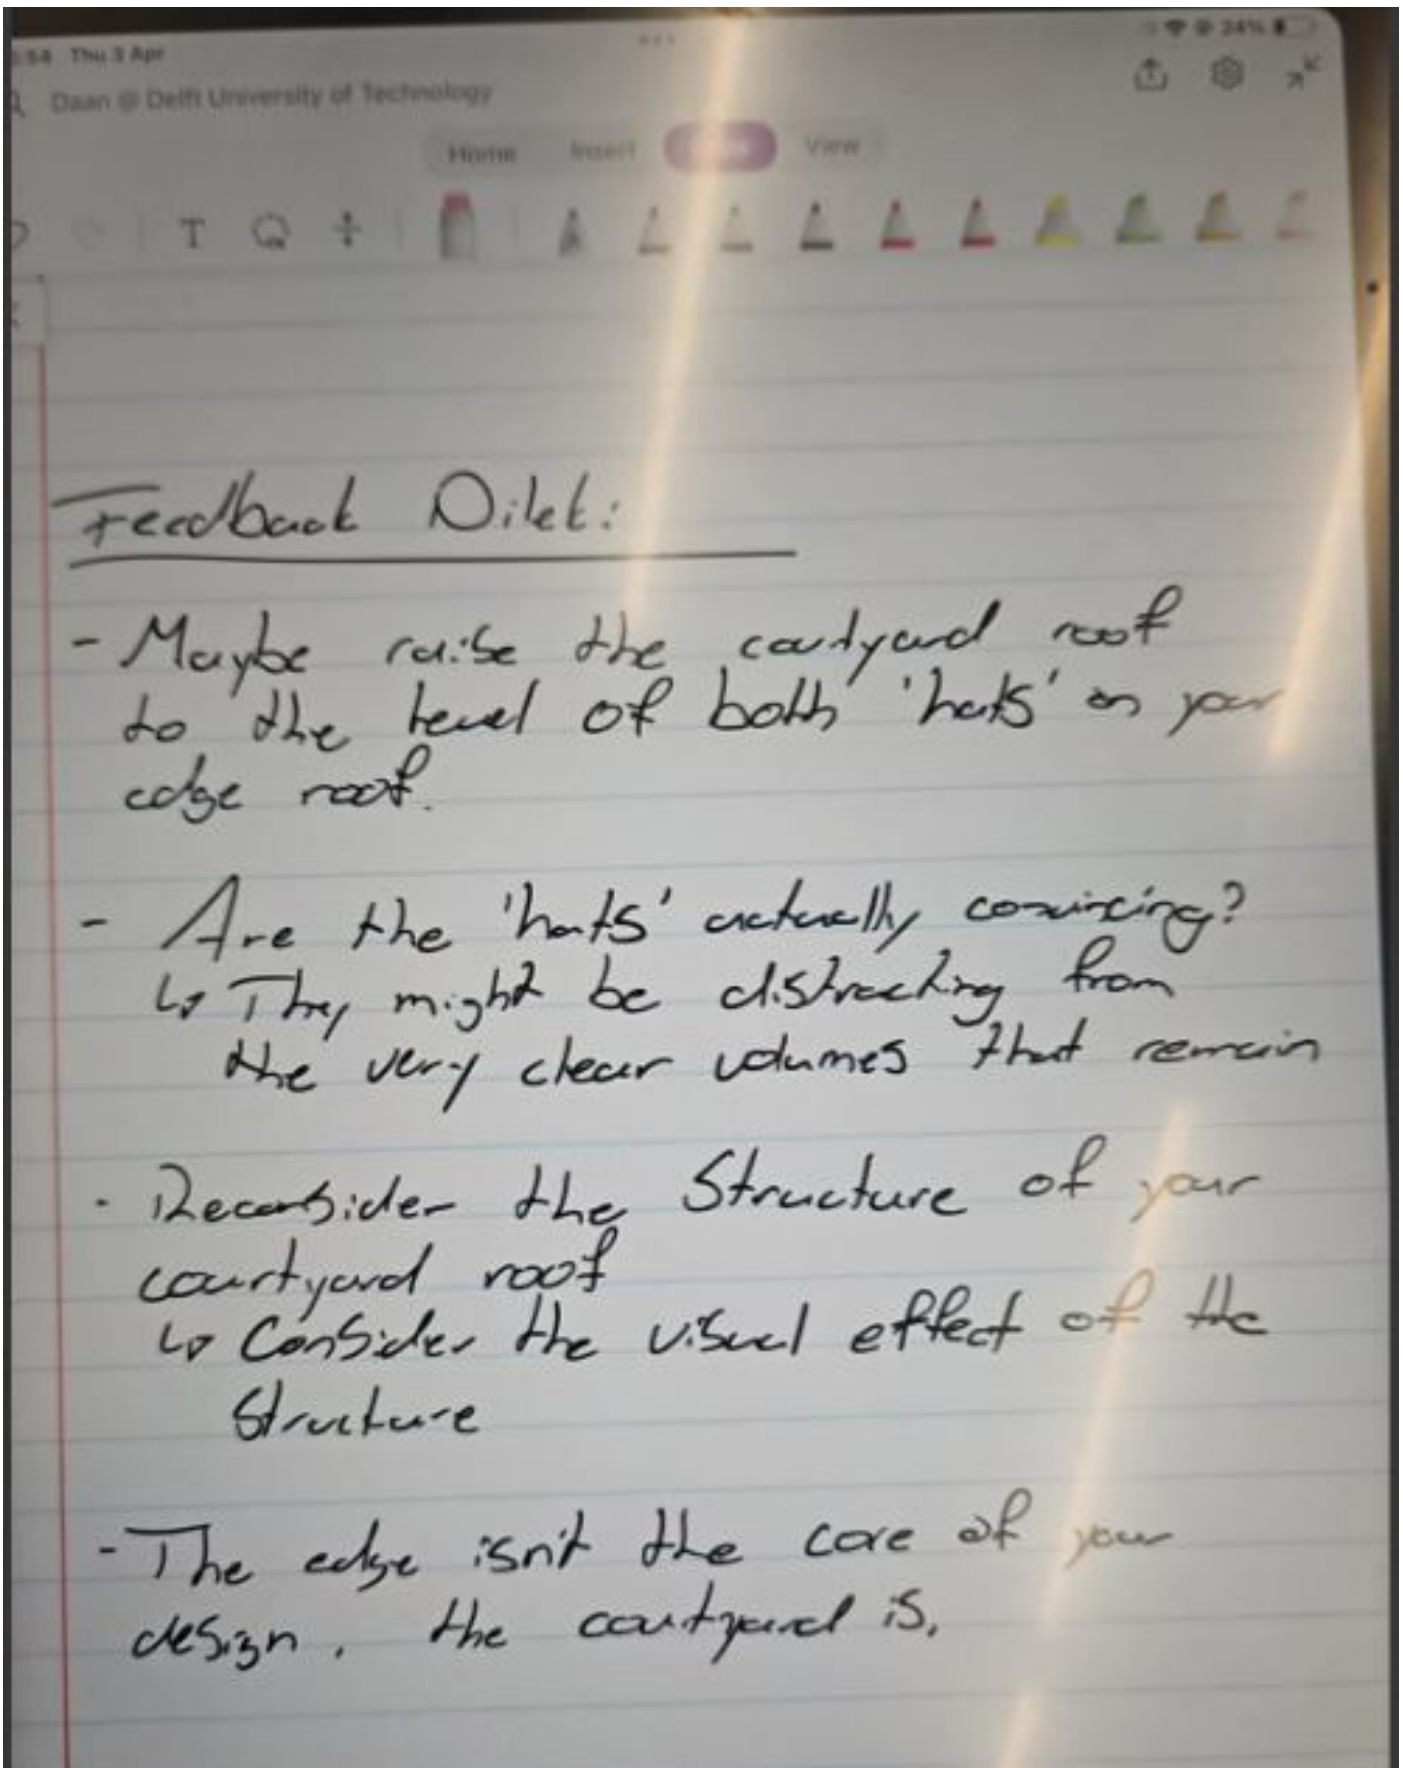 :54 Thu 3 Apr
24%
Daan @ Delft University of Technology
Home Insert View
T
Feedback Dilek:
- Maybe raise the courtyard roof
to the level of both 'hats' on your
edge roof.
- Are the 'hats' actually convincing?
↳ They might be distracting from
the very clear volumes that remain
- Reconsider the structure of your
courtyard roof
↳ Consider the visual effect of the
structure
- The edge isn't the core of your
design, the courtyard is,